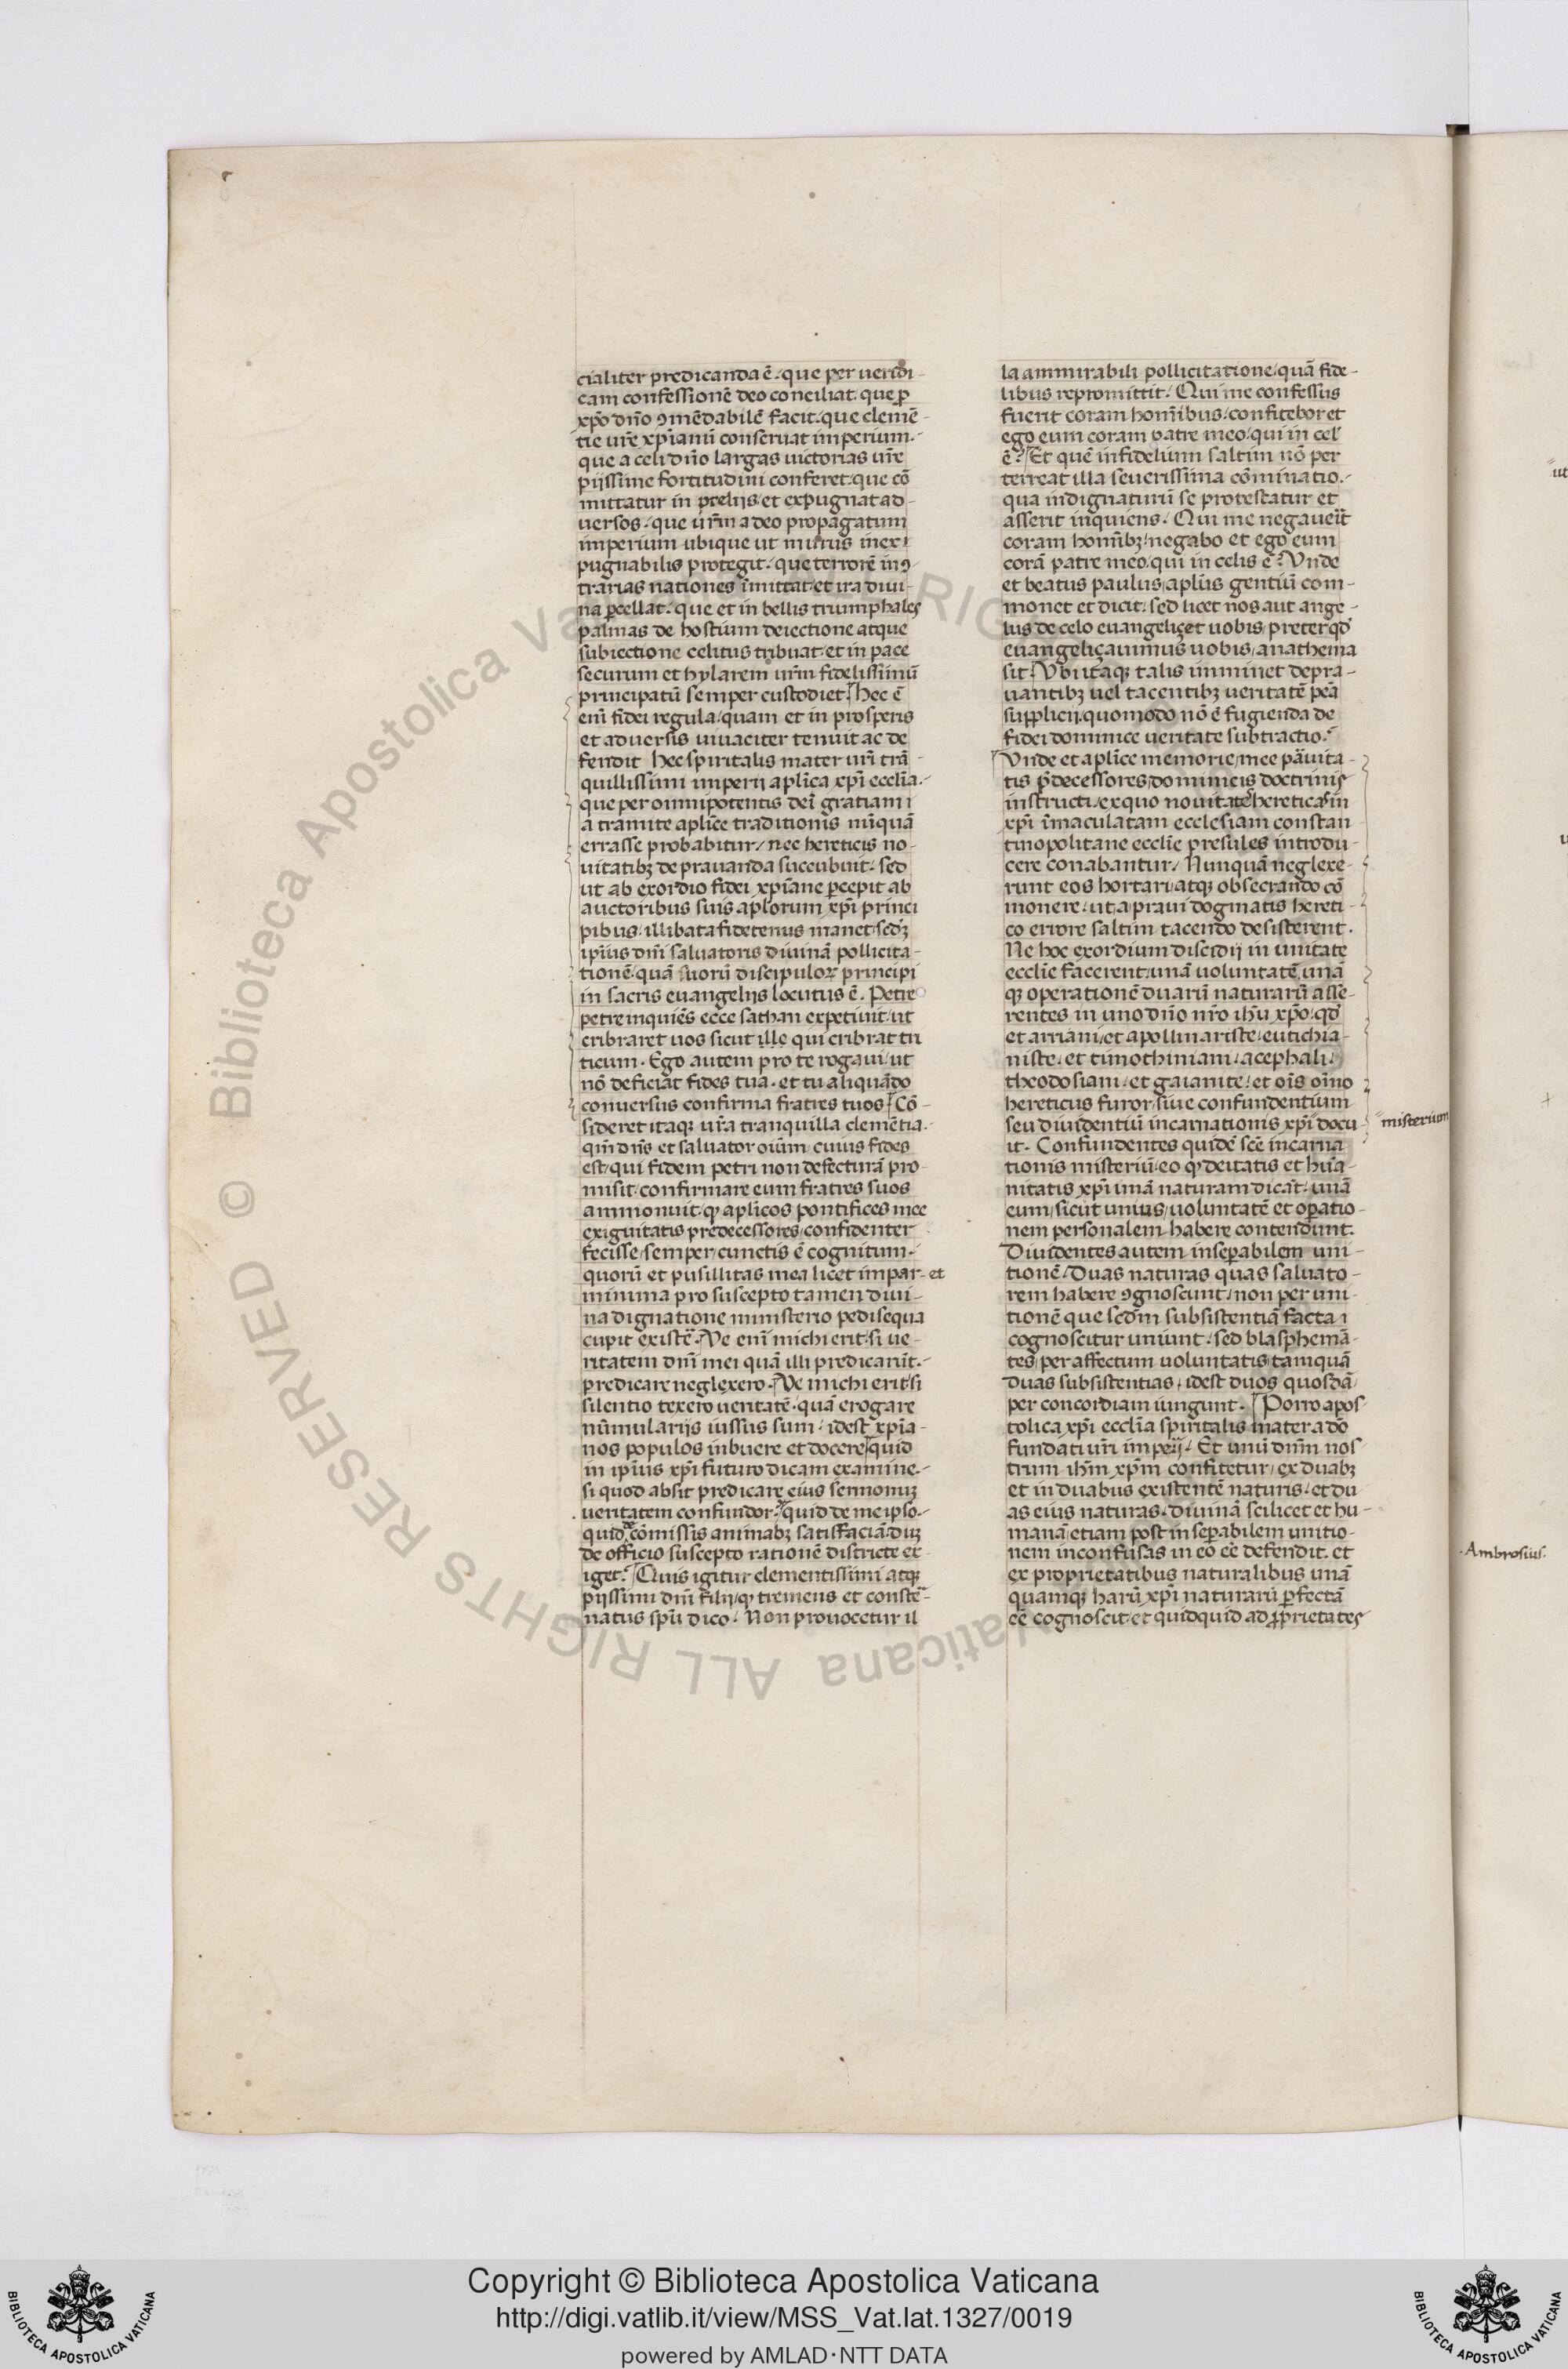 cialiter predicanda ē. que per ueridi-
cam confessionē deo conciliat. que ꝑ
xp̄o dn̄o ꝯmēdabilē facit. que clemē-
tie ur̄e xp̄ianū conseruat imperium.
que a celi dn̄o largas uictorias ur̄e
pijssime fortitudini conferet. que cō
mittatur in preliis et expugnat ad-
uersos. que ur̄m a deo propagatum
imperium ubique ut murus inex
pugnabilis protegit. que terrorē in ꝯ-
trarias nationes īmittat et ira diui-
na ꝑcellat. que et in bellis triumphales
palmas de hostium deiectione atque
subiectione celitus tribuat et in pace
securum et hylarem ur̄m fidelissimū
principatū semper custodiet. hec ē
enī fidei regula quam et in prosperis
et aduersis uiuaciter tenuit ac de
fendit hec spiritalis mater ur̄i trā-
quillissimi imperij aplīca xp̄i ecclīa.
que per omnipotentis dei gratiam
a tramite aplīce traditionis nūquā
errasse probabitur. nec hereticis no-
uitatibꝫ deprauanda succubuit. sed
ut ab exordio fidei xp̄iane ꝑcepit ab
auctoribus suis aplorum xp̄i princi
pibus illibata fidetenus manet. sedꝫ
ip̄ius dn̄i saluatoris diuinā pollicita-
tionē quā suorū discipuloꝝ principi
in sacris euangelijs locutus ē. Petre
petre inquiēs ecce sathan expetiuit ut
cribraret uos sicut ille qui cribrat tri
ticum. Ego autem pro te rogaui ut
nō deficiat fides tua. et tu aliquādo
conuersus confirma fratres tuos. Cō-
sideret itaqꝫ ur̄a tranquilla clemētia.
qm̄ dn̄s et saluator oīum, cuius fides
est, qui fidem petri non defecturā pro-
misit. confirmare eum fratres suos
ammonuit. ꝙ aplīcos pontifices mee
exiguitatis predecessores confidenter
fecisse semper cunctis ē cognitum.
quorū et pusillitas mea licet impar- et
minima pro suscepto tamen diui-
na dignatione ministerio pedisequa
cupit existē. Ve enī michi erit si ue-
ritatem dn̄i mei quā illi predicarūt.
predicare neglexero. Ve michi erit si
silentio texero ueritatē quā erogare
nūmularijs iussus sum. idest xp̄ia-
nos populos inbuere et docere quid
in ip̄ius xp̄i futuro dicam examine.
si quod absit predicare eius sermonum
ueritatem confundor. quid de me ipso.
quid de cōmissis animabꝫ satisfaciā dum
de officio suscepto rationē districte ex
iget. Quis igitur clementissimi atqꝫ
pijssimi dn̄i filij ꝙ tremens et constē-
natus sp̄u dico. Non prouocetur il
la ammirabili pollicitatione quā fide-
libus repromittit. Qui me confessus
fuerit coram homībus. confitebor et
ego eum coram patre meo, qui in cel̄
ē? Et quē infidelium saltim nō per
terreat illa seuerissima cōminatio.
qua indignaturū se protestatur et
asserit inquiens. Qui me negauerit
coram homībꝫ negabo et ego eum
corā patre meo, qui in celis ē? Vnde
et beatus paulus aplūs gentiū com-
monet et dicit. sed licet nos aut ange-
lus de celo euangeliçet uobis preter qd̄
euangeliçauimus uobis anathema
sit. Vbi itaqꝫ talis imminet depra-
uantibꝫ uel tacentibꝫ ueritatē pēa
supplicij. quomodo nō ē fugienda de
fidei dominice ueritate subtractio.
Vnde et aplīce memorie mee paruita-
tis p̄decessores dominicis doctrinis
instructi ex quo nouitatē hereticas in
xp̄i īmaculatam ecclesiam constan
tinopolitane ecclīe presules introdu-
cere conabantur. Nunquā neglexe-
runt eos hortari atqꝫ obsecrando cō
monere. ut a praui dogmatis hereti-
co errore saltim tacendo desisterent.
Ne hoc exordium discidij in unitate
ecclīe facerent. unā uoluntatē unā
qꝫ operationē duarū naturarū asse-
rentes in uno dn̄o nr̄o ih̄u xp̄o. qd̄
et arriani et apollinariste. eutichia-
niste. et timothiniani. acephali.
theodosiani. et gaianite. et oīs oīno
hereticus furor siue confundentium
seu diuidentiū incarnationis xp̄i docu- misterium
it. Confundentes quidē scē incarna
tionis misteriū eo ꝙ deitatis et hūa-
nitatis xp̄i unā naturam dicāt. unā
eum sicut unius uoluntatē et oꝑatio-
nem personalem habere contendunt.
Diuidentes autem inseꝑabilem uni-
tionē. Duas naturas quas saluato-
rem habere ꝯgnoscunt non per uni-
tionē que scd̄m subsistentiā facta
cognoscitur uniunt. sed blasphemā-
tes per affectum uoluntatis tamquā
duas subsistentias. idest duos quosdā
per concordiam iungunt. Porro apos
tolica xp̄i ecclīa spiritalis mater a deo
fundati ur̄i imperij. Et unū dn̄m nos
trum ih̄m xp̄m confitetur. ex duabꝫ
et in duabus existentē naturis. et du
as eius naturas. diuinā scilicet et hu-
manā etiam post inseꝑabilem unitio-
nem inconfusas in eo eē defendit. et
ex proprietatibus naturalibus unā
quamqꝫ harū xp̄i naturarū ꝑfectā
eē cognoscit. et quidquid ad ꝓprietates
Ambrosius.
Biblioteca Apostolica Vaticana ALL RIGHTS RESERVED ©
Copyright © Biblioteca Apostolica Vaticana
http://digi.vatlib.it/view/MSS_Vat.lat.1327/0019
powered by AMLAD·NTT DATA
BIBLIOTECA APOSTOLICA VATICANA
BIBLIOTECA APOSTOLICA VATICANA